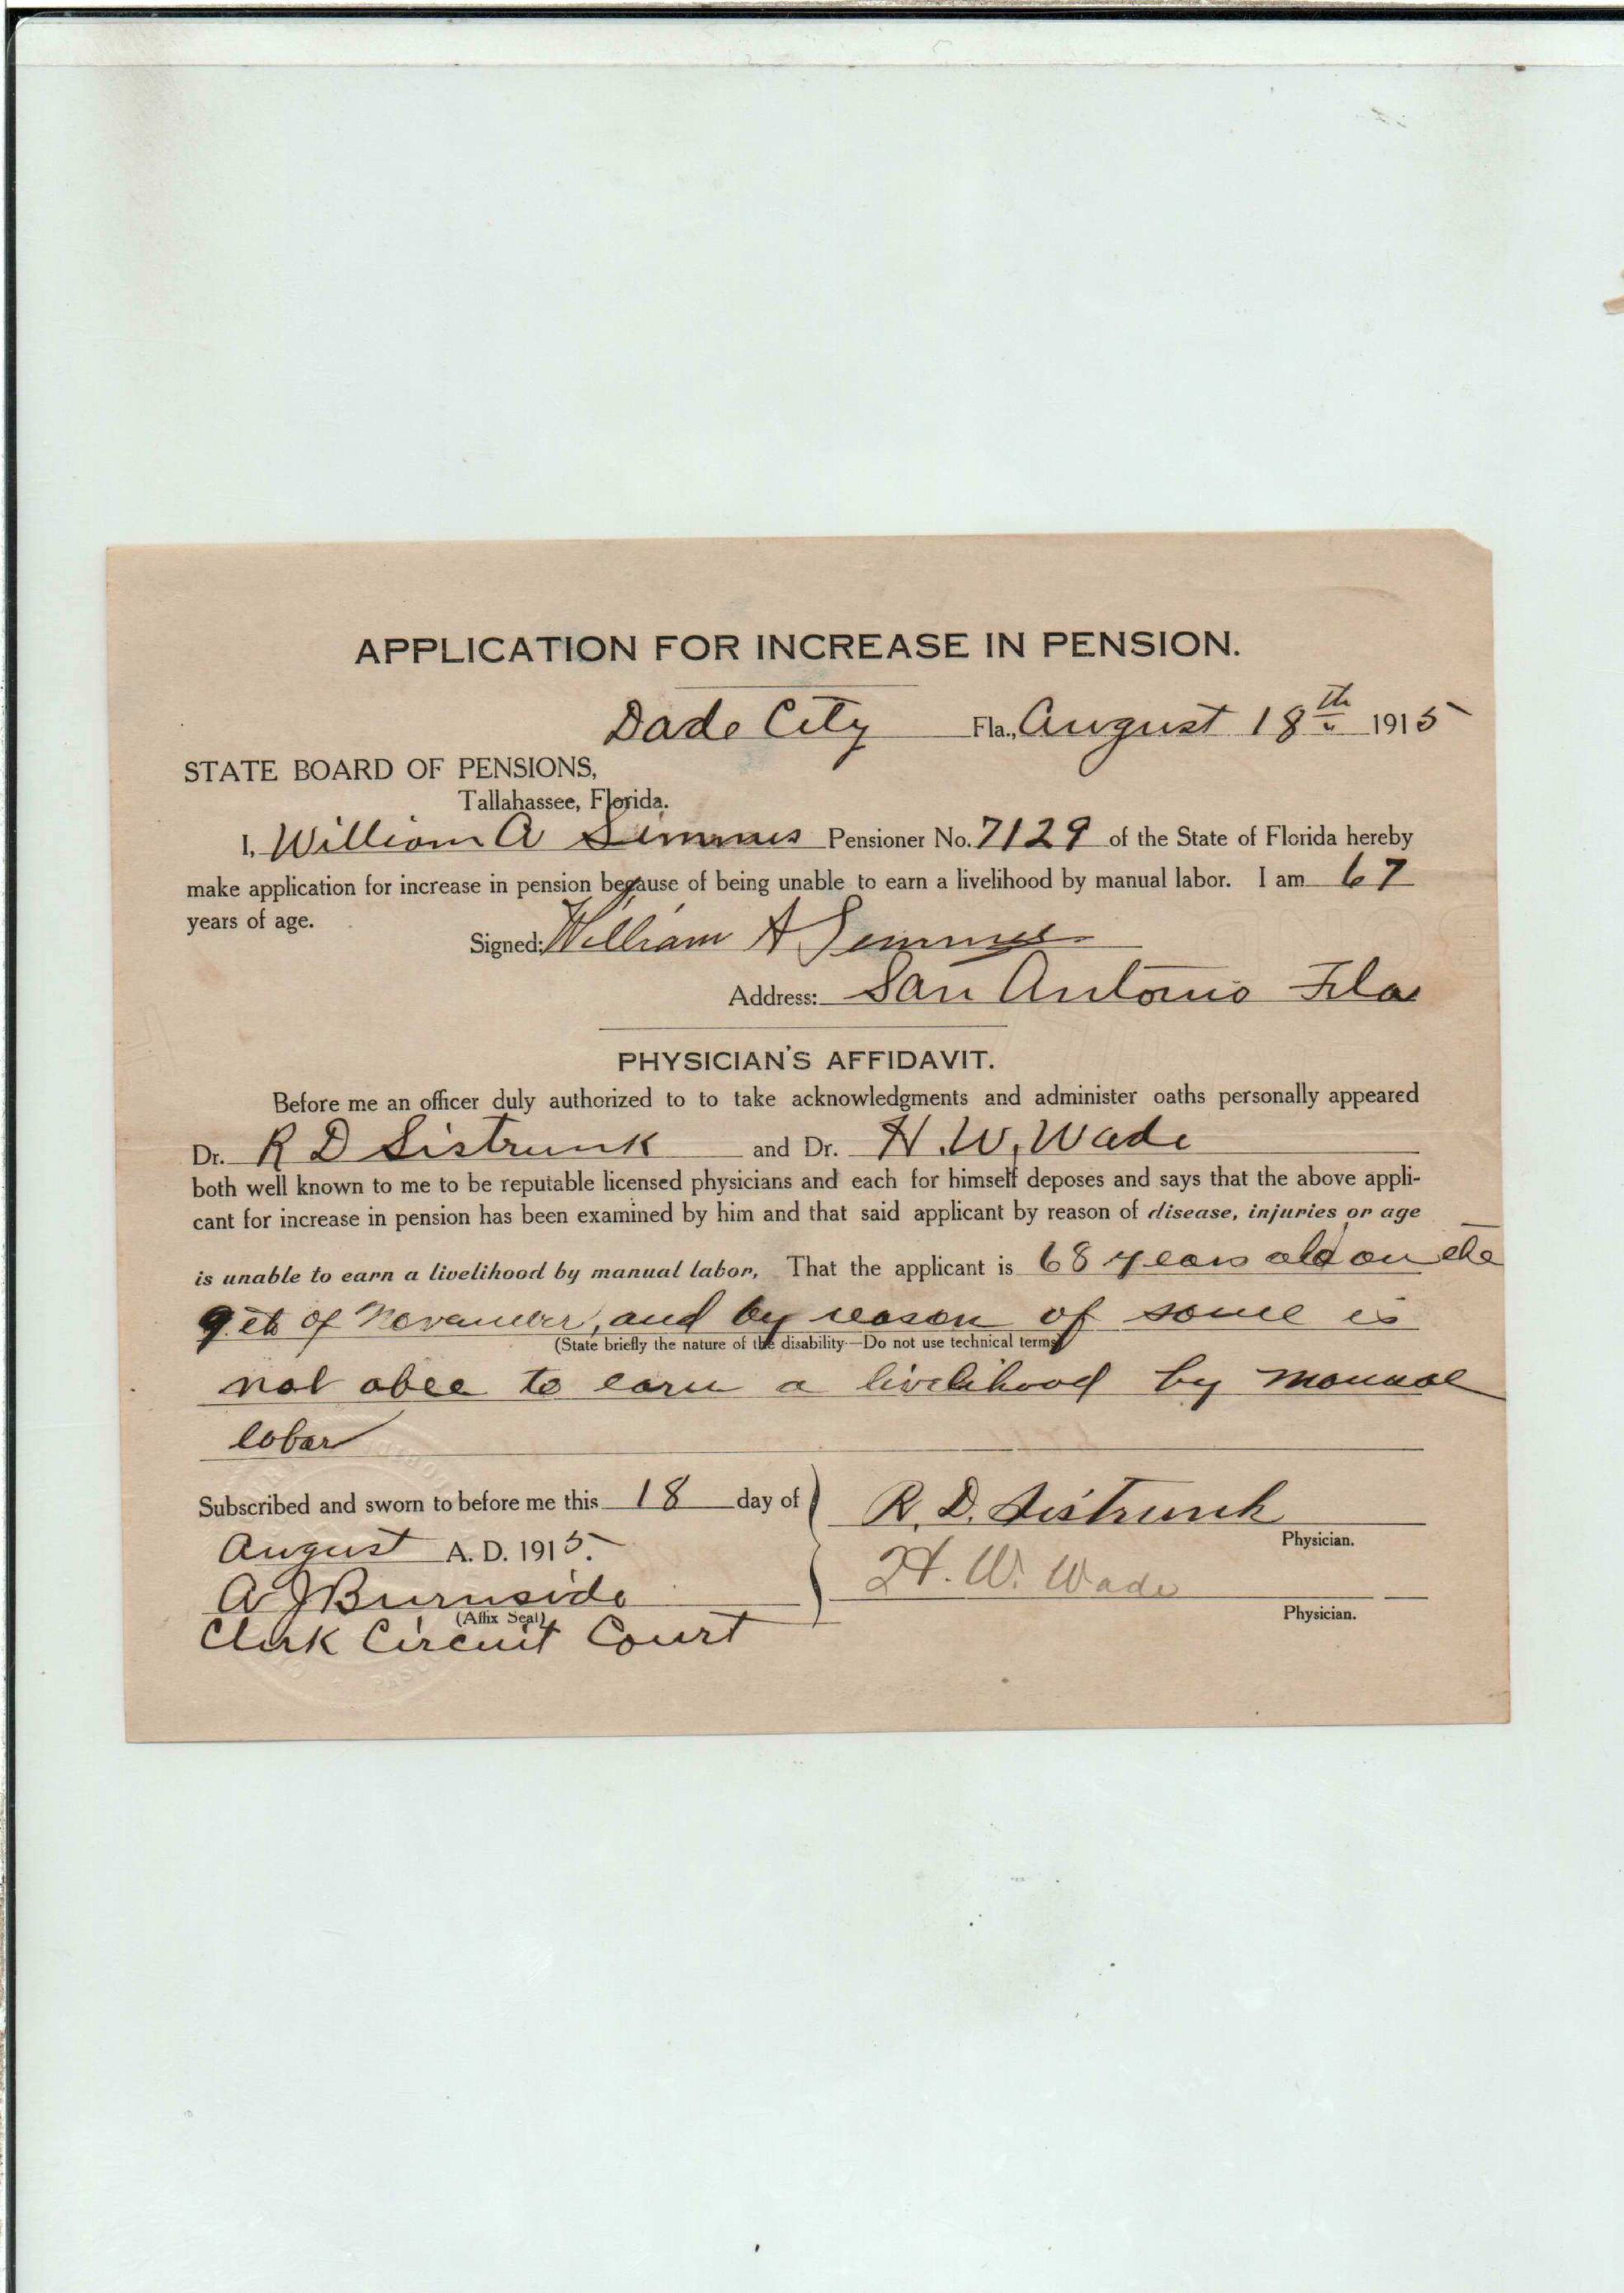 APPLICATION FOR INCREASE IN PENSION.
Dade City Fla., August 18th 1915
STATE BOARD OF PENSIONS,
Tallahassee, Florida.
I, William A Simmes Pensioner No. 7129 of the State of Florida hereby
make application for increase in pension because of being unable to earn a livelihood by manual labor. I am 67
years of age.
Signed: William A Semmes
Address: San Antonio Fla
PHYSICIAN'S AFFIDAVIT.
Before me an officer duly authorized to to take acknowledgments and administer oaths personally appeared
Dr. R D Sistrunk and Dr. H. W. Wade
both well known to me to be reputable licensed physicians and each for himself deposes and says that the above appli-
cant for increase in pension has been examined by him and that said applicant by reason of disease, injuries or age
is unable to earn a livelihood by manual labor, That the applicant is 68 years old on the
9.th of November, and by reason of some is
(State briefly the nature of the disability—Do not use technical terms)
not able to earn a livelihood by manual
labor
Subscribed and sworn to before me this 18 day of
August A. D. 1915.
A J Burnside
(Affix Seal)
Clerk Circuit Court
R. D. Sistrunk
Physician.
H. W. Wade
Physician.